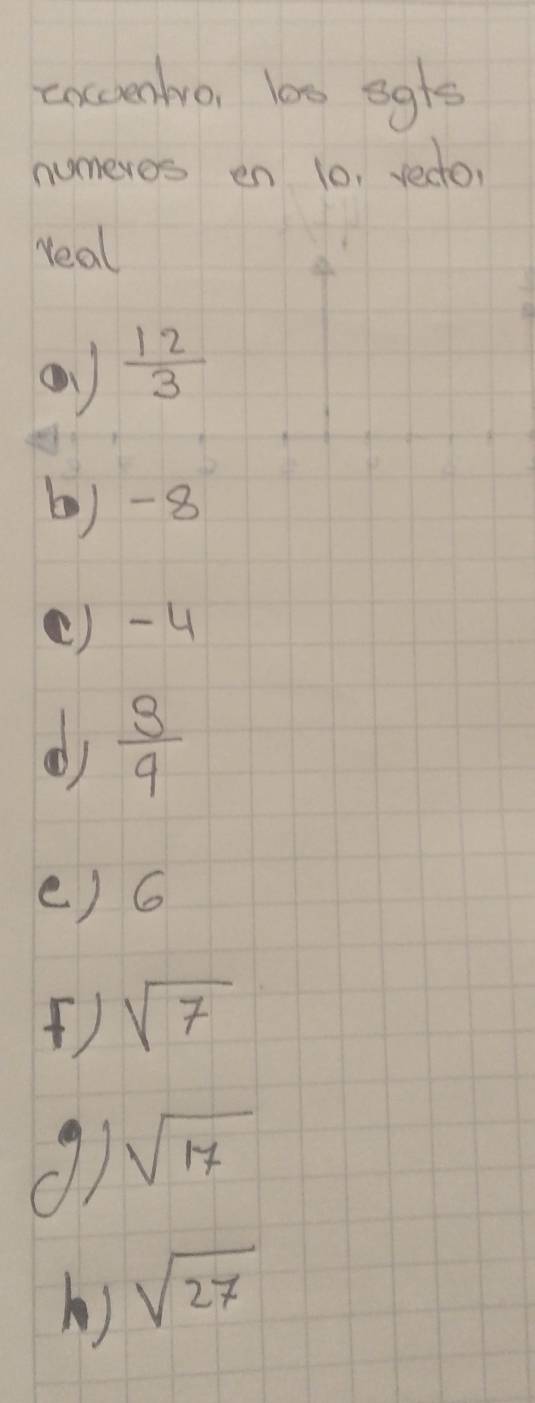 encuentra los sgts
numeros en la recta
real
a) 12/3
b) -8
c) -4
d) 8/9
e) 6
f) √7
g) √17
h) √27